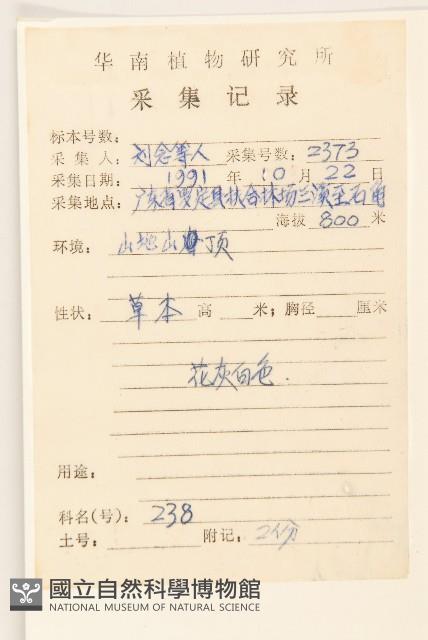 华南植物研究所
采集记录
标本号数:
采集人: 刘念等人 采集号数: 2373
采集日期: 1991 年 10 月 22 日
采集地点: 广东省罗定县扶合林场兰滨至石角
海拔 800 米
环境: 山地山顶
性状: 草本 高 米; 胸径 厘米
花灰白色.
用途:
科名(号): 238
土号: 附记: 2份
國立自然科學博物館
NATIONAL MUSEUM OF NATURAL SCIENCE